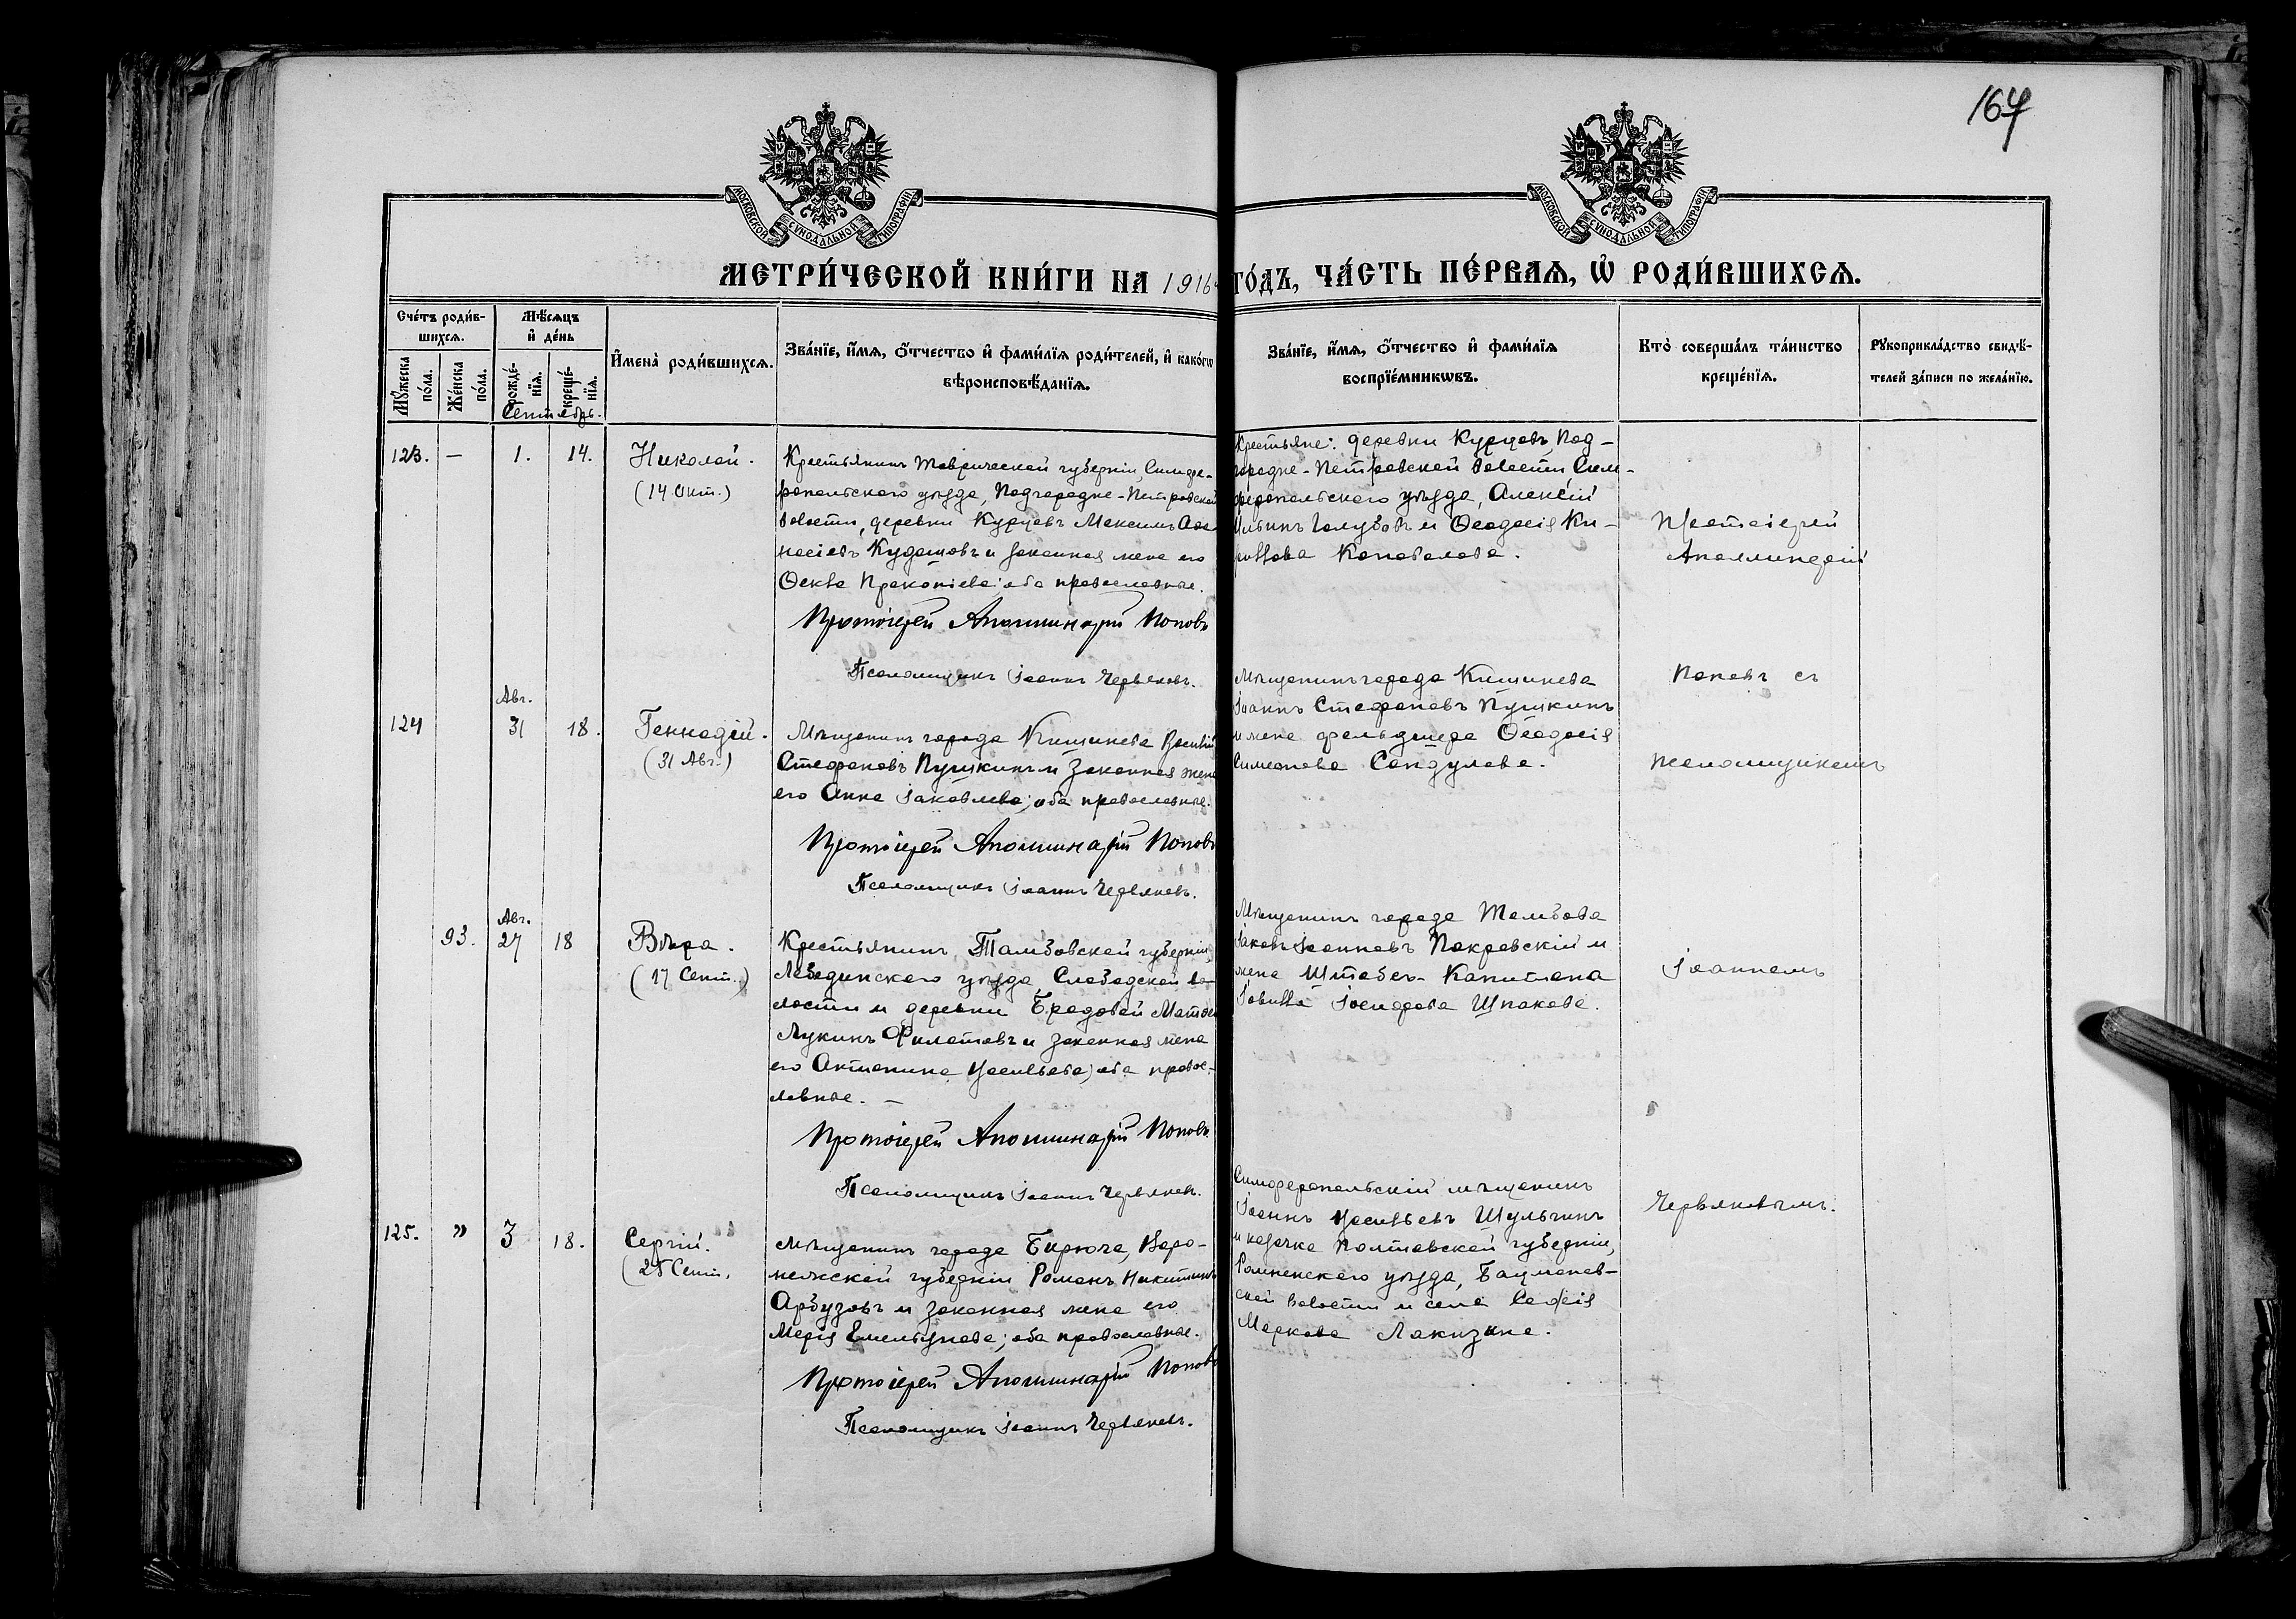 164
МОСКОВСКОЙ СѴНОДАЛЬНОЙ ТИПОГРАФІИ
МОСКОВСКОЙ СѴНОДАЛЬНОЙ ТИПОГРАФІИ
МЕТРИ́ЧЕСКОЙ КНИ́ГИ НА 1916 ГО́ДЪ, ЧА́СТЬ ПЕ́РВАЯ, Ѡ҆ РОДИ́ВШИХСЯ.
Сче́тъ роди́в-
шихся.
Мѣ́сяцъ
и҆ де́нь
Мꙋ́жеска по́ла.
Же́нска по́ла.
рожде́-нїѧ.
креще́-нїѧ.
И҆мена̀ роди́вшихся.
Зва́нїе, и҆́мѧ, ѻ҆́тчество и҆ фами́лїѧ роди́телей, и҆ како́гѡ
вѣроисповѣ́данїѧ.
Зва́нїе, и҆́мѧ, ѻ҆́тчество и҆ фами́лїѧ
воспрїе́мникѡвъ.
Кто̀ соверша́лъ та́инство
креще́нїѧ.
Рꙋкоприкла́дство свидѣ́-
телей за́писи по жела́нїю.
Сентябрь.
123. — 1. 14.
Николай.
(14 Окт.)
Крестьянинъ Таврической губерніи, Симфе-
ропольскаго уѣзда, Подгородне-Петровской
волости, деревни Курцовъ Максимъ Аѳа-
насіевъ Кудашовъ и законная жена его
Ѳекла Прокопіева; оба православные.
Протоіерей Аполлинарій Поповъ
Псаломщикъ Іоаннъ Червяковъ.
Крестьяне: деревни Курцовъ, Под-
городне-Петровской волости, Сим-
феропольскаго уѣзда, Алексій
Ильинъ Голубовъ и Ѳеодосія Ки-
риллова Коновалова.
Протоіерей
Аполлинарій
Авг.
124 31 18.
Геннадій.
(31 Авг.)
Мѣщанинъ города Кишинева Василій
Стефановъ Пушкинъ и законная жена
его Анна Іаковлева; оба православные.
Протоіерей Аполлинарій Поповъ
Псаломщикъ Іоаннъ Червяковъ.
Мѣщанинъ города Кишинева
Іоаннъ Стефановъ Пушкинъ
и жена фельдшера Ѳеодосія
Симеонова Сандулова.
Поповъ съ
псаломщикомъ
Авг.
93. 27 18
Вѣра.
(17 Сент.)
Крестьянинъ Тамбовской губерніи,
Лебединскаго уѣзда, Слободской во-
лости и деревни Матвей
Лукинъ Филатовъ и законная жена
его Антонина Васильева; оба право-
лавные. —
Протоіерей Аполлинарій Поповъ
Псаломщикъ Іоаннъ Червяковъ.
Мѣщанинъ города Тамбова
Іаковъ Іоанновъ Покровскій и
жена Штабсъ-Капитана
Іосифова Шпакова.
Іоанномъ
125. " 3 18.
Сергій.
(25 Сент.
Мѣщанинъ города Бирюча, Воро-
нежской губерніи Романъ Никитинъ
Арбузовъ и законная жена его
Марія Емельянова; оба православные.
Протоіерей Аполлинарій Поповъ
Псаломщикъ Іоаннъ Червяковъ.
Симферопольскій мѣщанинъ
Іоаннъ Васильевъ Шульгинъ
и казачка Полтавской губерніи,
Роменскаго уѣзда,
ской волости и села Софія
Маркова Лакизина.
Червяковымъ.